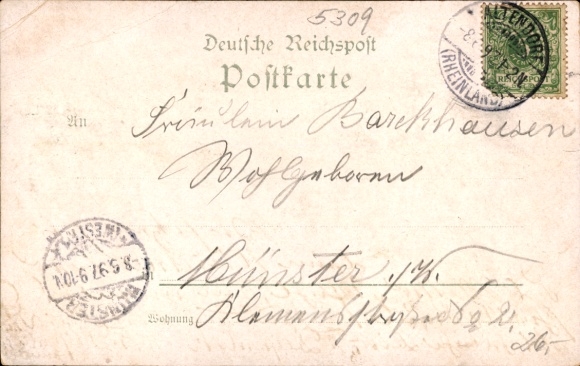 5309
Deutsche Reichspost
Postkarte
ALTENDORF
(RHEINLAND)
An Fräulein Barckhausen
Wohlgeboren
MÜNSTER
(WESTF.)
8.5.97. 9-10
Münster i/W.
Wohnung Klemensstraße
26,-